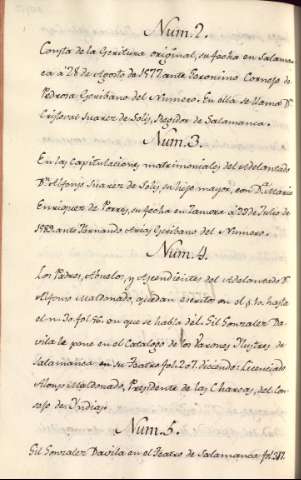 Num. 2.
Consta de la Escritura original, su fecha en Salaman-
ca a 28 de Agosto de 1577 ante Geronimo Cornejo de
Pedrosa Escribano del Numero. En ella se llama Dn.
Cristoval Suarez de Solis, Regidor de Salamanca.
Num. 3.
En las capitulaciones matrimoniales del Adelantado
Dn. Alfonso Suarez de Solis su hijo mayor, con Da. Maria
Enrriquez de Porres, su fecha en Zamora a 20 de Julio de
1589. ante Fernando Arias Escribano del Numero.
Num. 4.
Los Padres, Abuelos, y Ascendientes del Adelantado Dn.
Alfonso Maldonado, quedan escritos en el §. 10. hasta
el n. 30. fol. 76. en que se habla del. Gil Gonzalez Da-
vila le pone en el Catalogo de los Varones Ilustres de
Salamanca en su Teatro fol. 207. diciendo: Licenciado
Alonso Maldonado, Presidente de las Charcas, del Con-
sejo de Indias.
Num. 5.
Gil Gonzalez Davila en el Teatro de Salamanca fol.